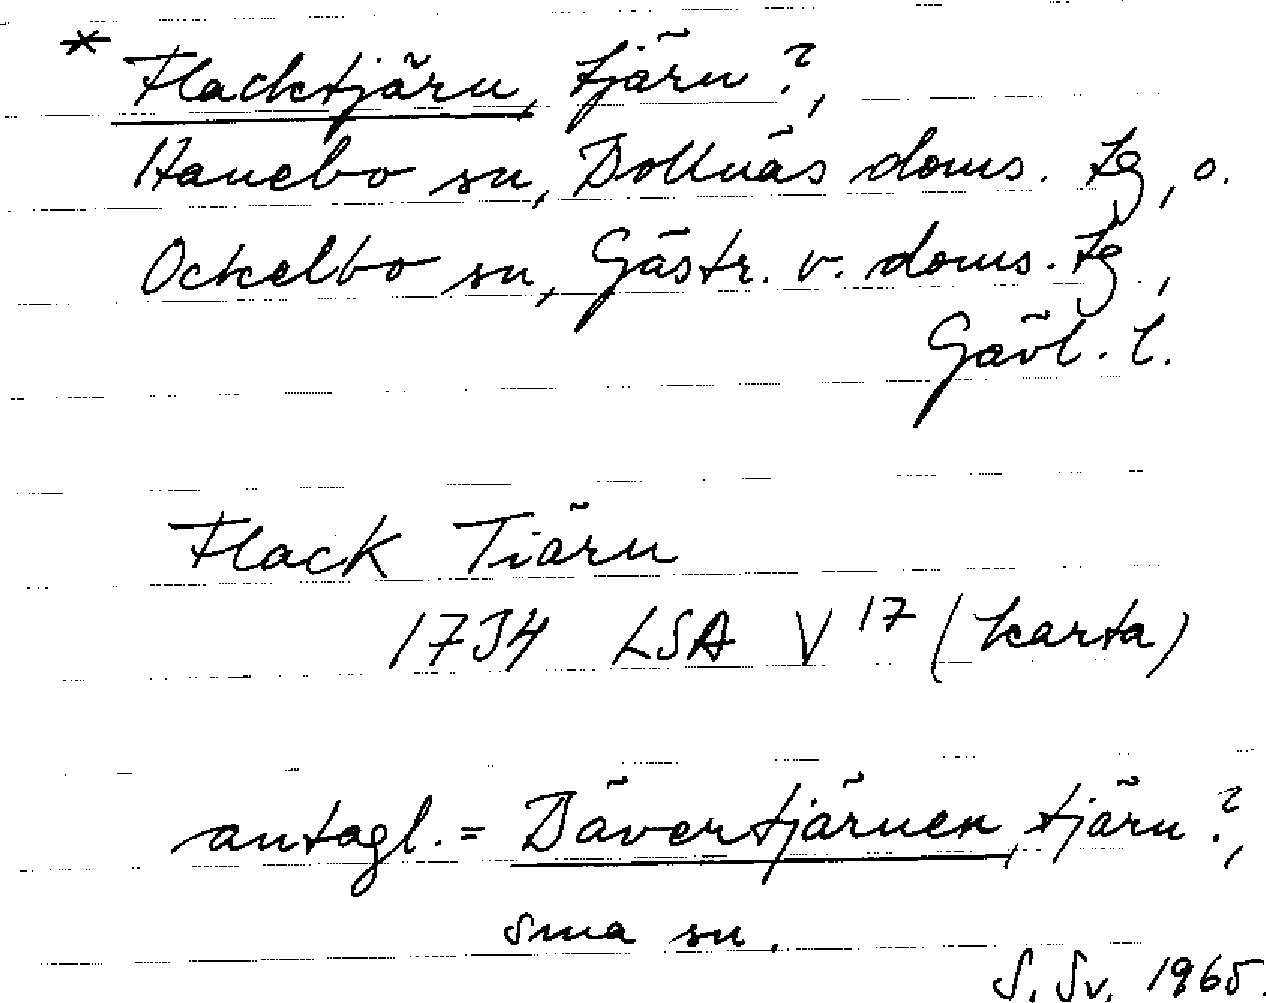 * Flacktjärn, tjärn?,
Hanebo sn, Bollnäs doms. tg, o.
Ockelbo sn, Gästr. v. doms. tg,
Gävl. l.
Flack Tiärn
1734 LSA V 17 (karta)
antagl. = Bävertjärnen, tjärn?,
sma sn.
S. Sv. 1965.